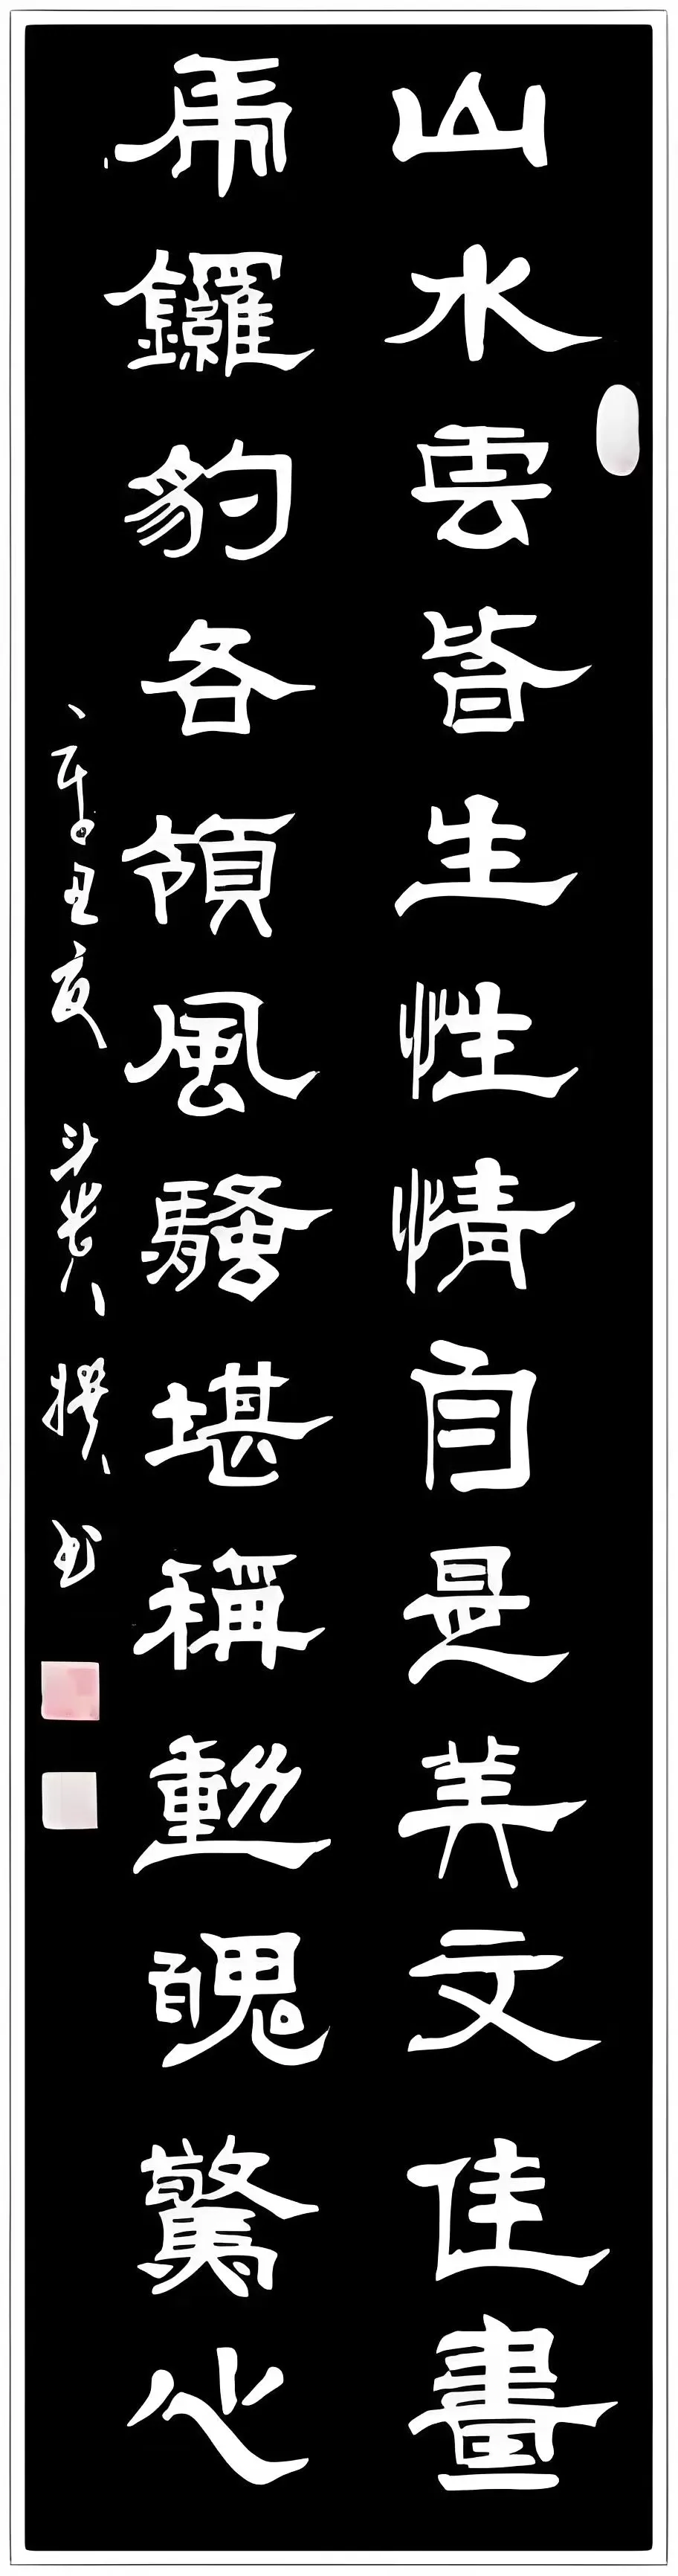 山水雲皆生性情自是美文佳畫
虎鑼豹各領風騷堪稱動魄驚心
辛丑夏 撰书